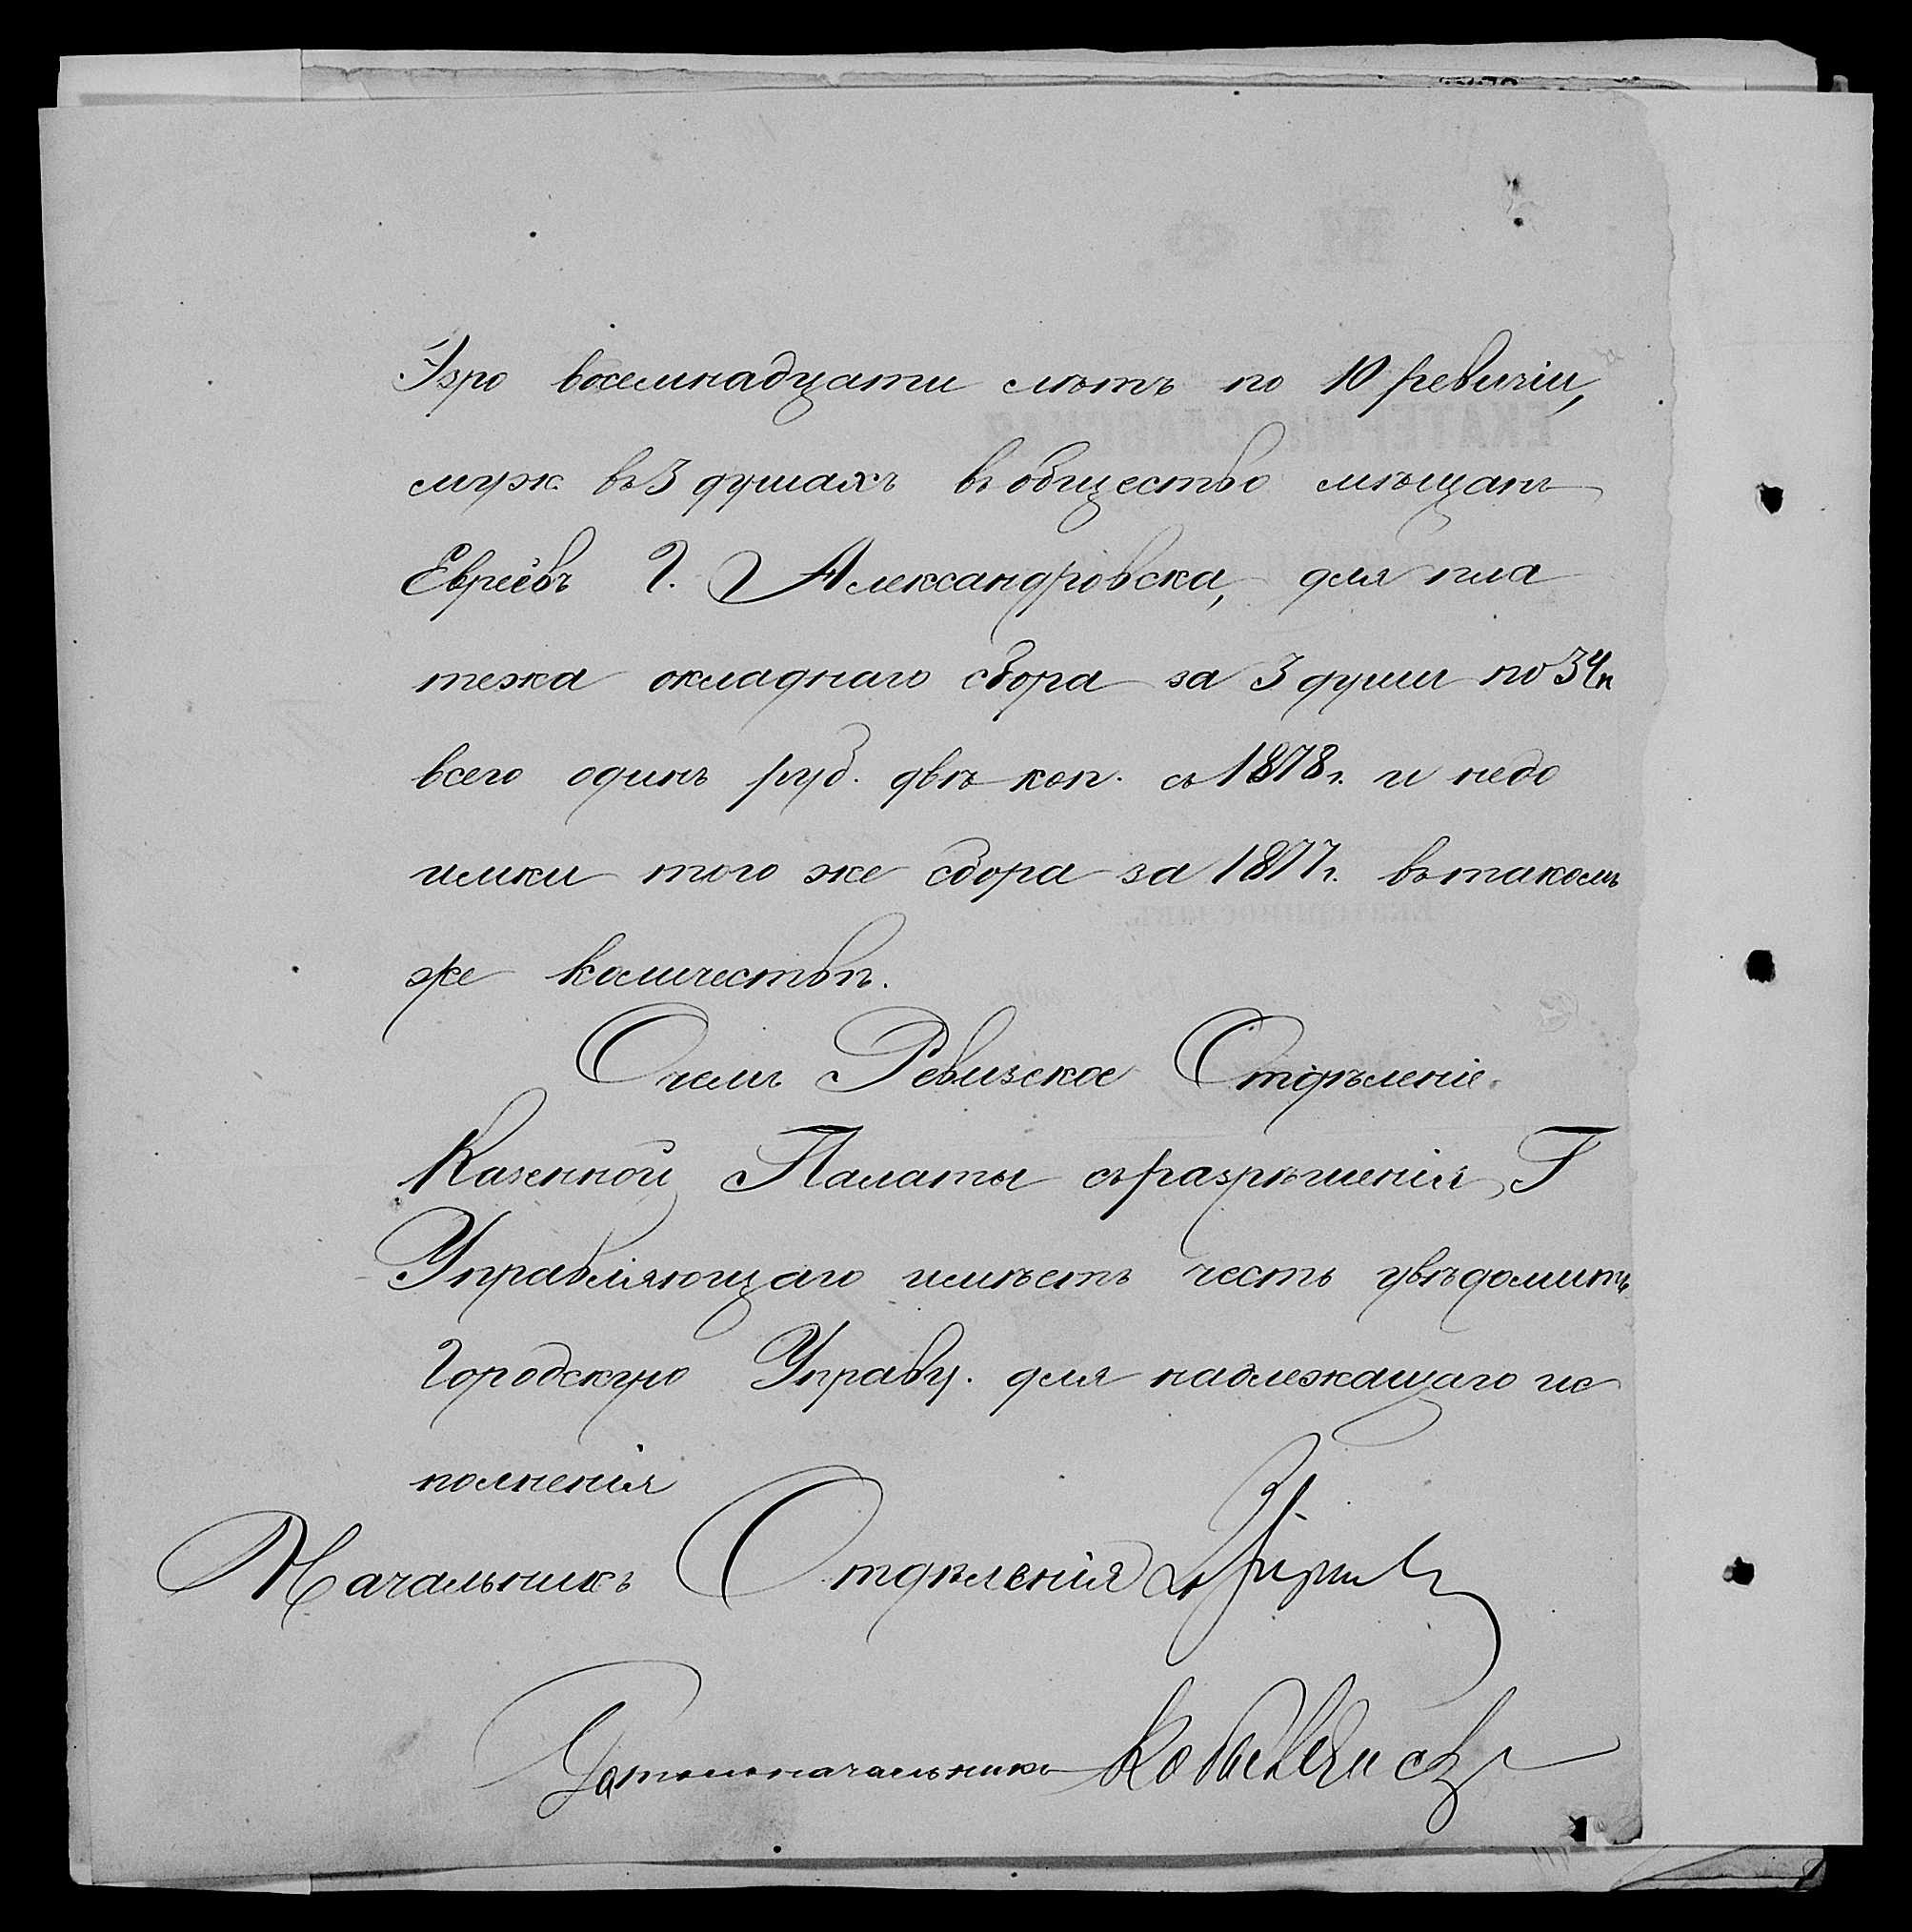 Эзро восемнадцати лѣтъ по 10 ревизіи,
муж. въ 3 душахъ въ общество мѣщанъ
Евреевъ Г. Александровска, для пла
тежа окладнаго сбора за 3 души по 34к
всего одинъ руб. двѣ коп. съ 1878 г. и недо
имки того же сбора за 1877 г. въ такомъ
же количествѣ.
О чемъ Ревизское Отдѣленіе
Казенной Палаты съ разрѣшенія Г
Управляющаго имѣетъ честь увѣдомить
Городскую Управу. для надлежащаго ис
полненія
Начальникъ Отдѣленія
Столоначальникъ